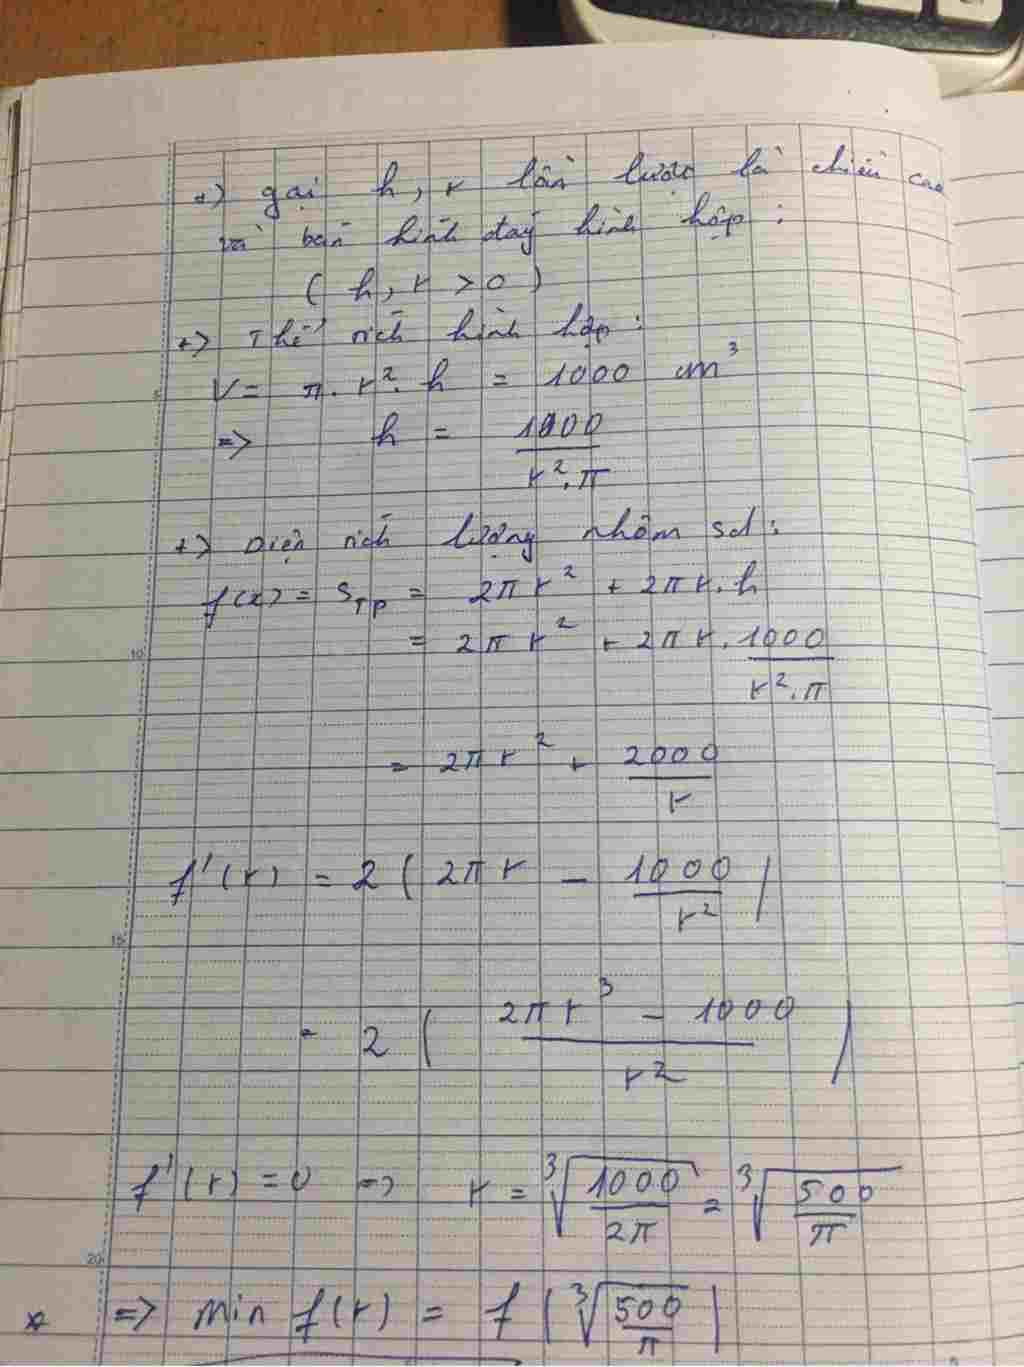 +) gọi h, r lần lượt là chiều cao
và bán hình đáy hình hộp :
( h, r > 0 )
+) Thể tích hình hộp :
V = π . r² . h = 1000 cm³
=> h = 1000 / r² . π
+) Diện tích lượng nhôm sd :
f(x) = STP = 2πr² + 2πr . h
= 2πr² + 2πr . 1000 / r² . π
10
= 2πr² + 2000 / r
f'(r) = 2 ( 2πr - 1000 / r² )
15
= 2 ( 2πr³ - 1000 / r² )
f'(r) = 0 => r = ∛(1000 / 2π) = ∛(500 / π)
20
* => min f(r) = f ( ∛(500 / π) )